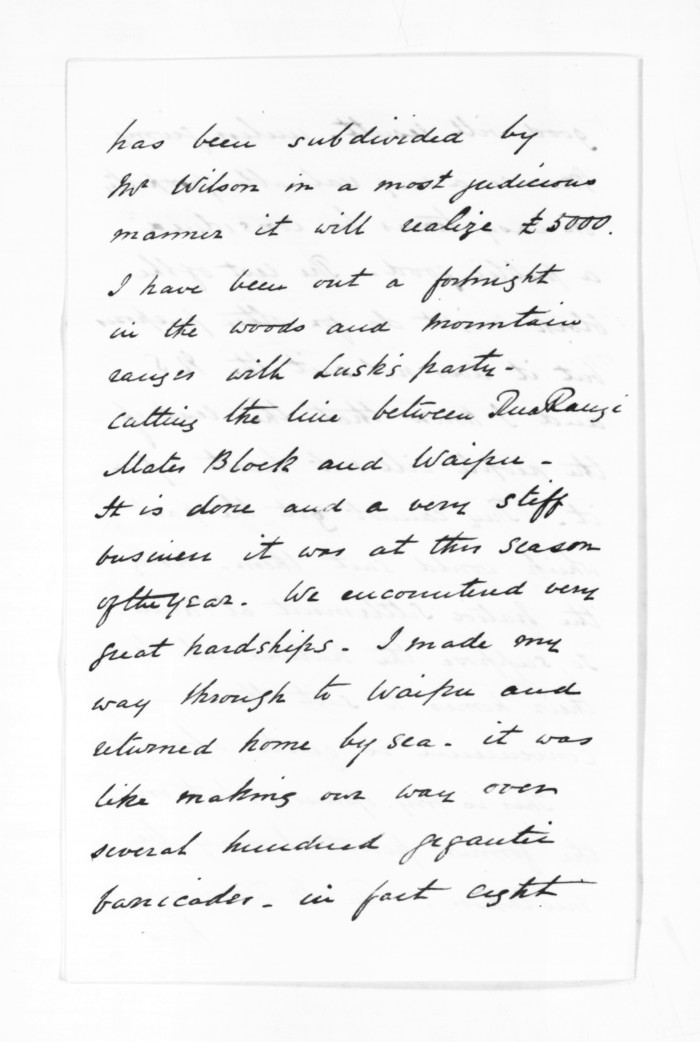 has been subdivided by
Mr Wilson in a most judicious
manner it will realize £5000.
I have been out a fortnight
in the woods and mountain
ranges with Lusk's party -
cutting the line between RuaRangi
Mates Block and Waipu -
It is done and a very stiff
business it was at this season
of the year. We encountered very
great hardships - I made my
way through to Waipu and
returned home by sea - it was
like making our way over
several hundred gigantic
barricades - in fact eight